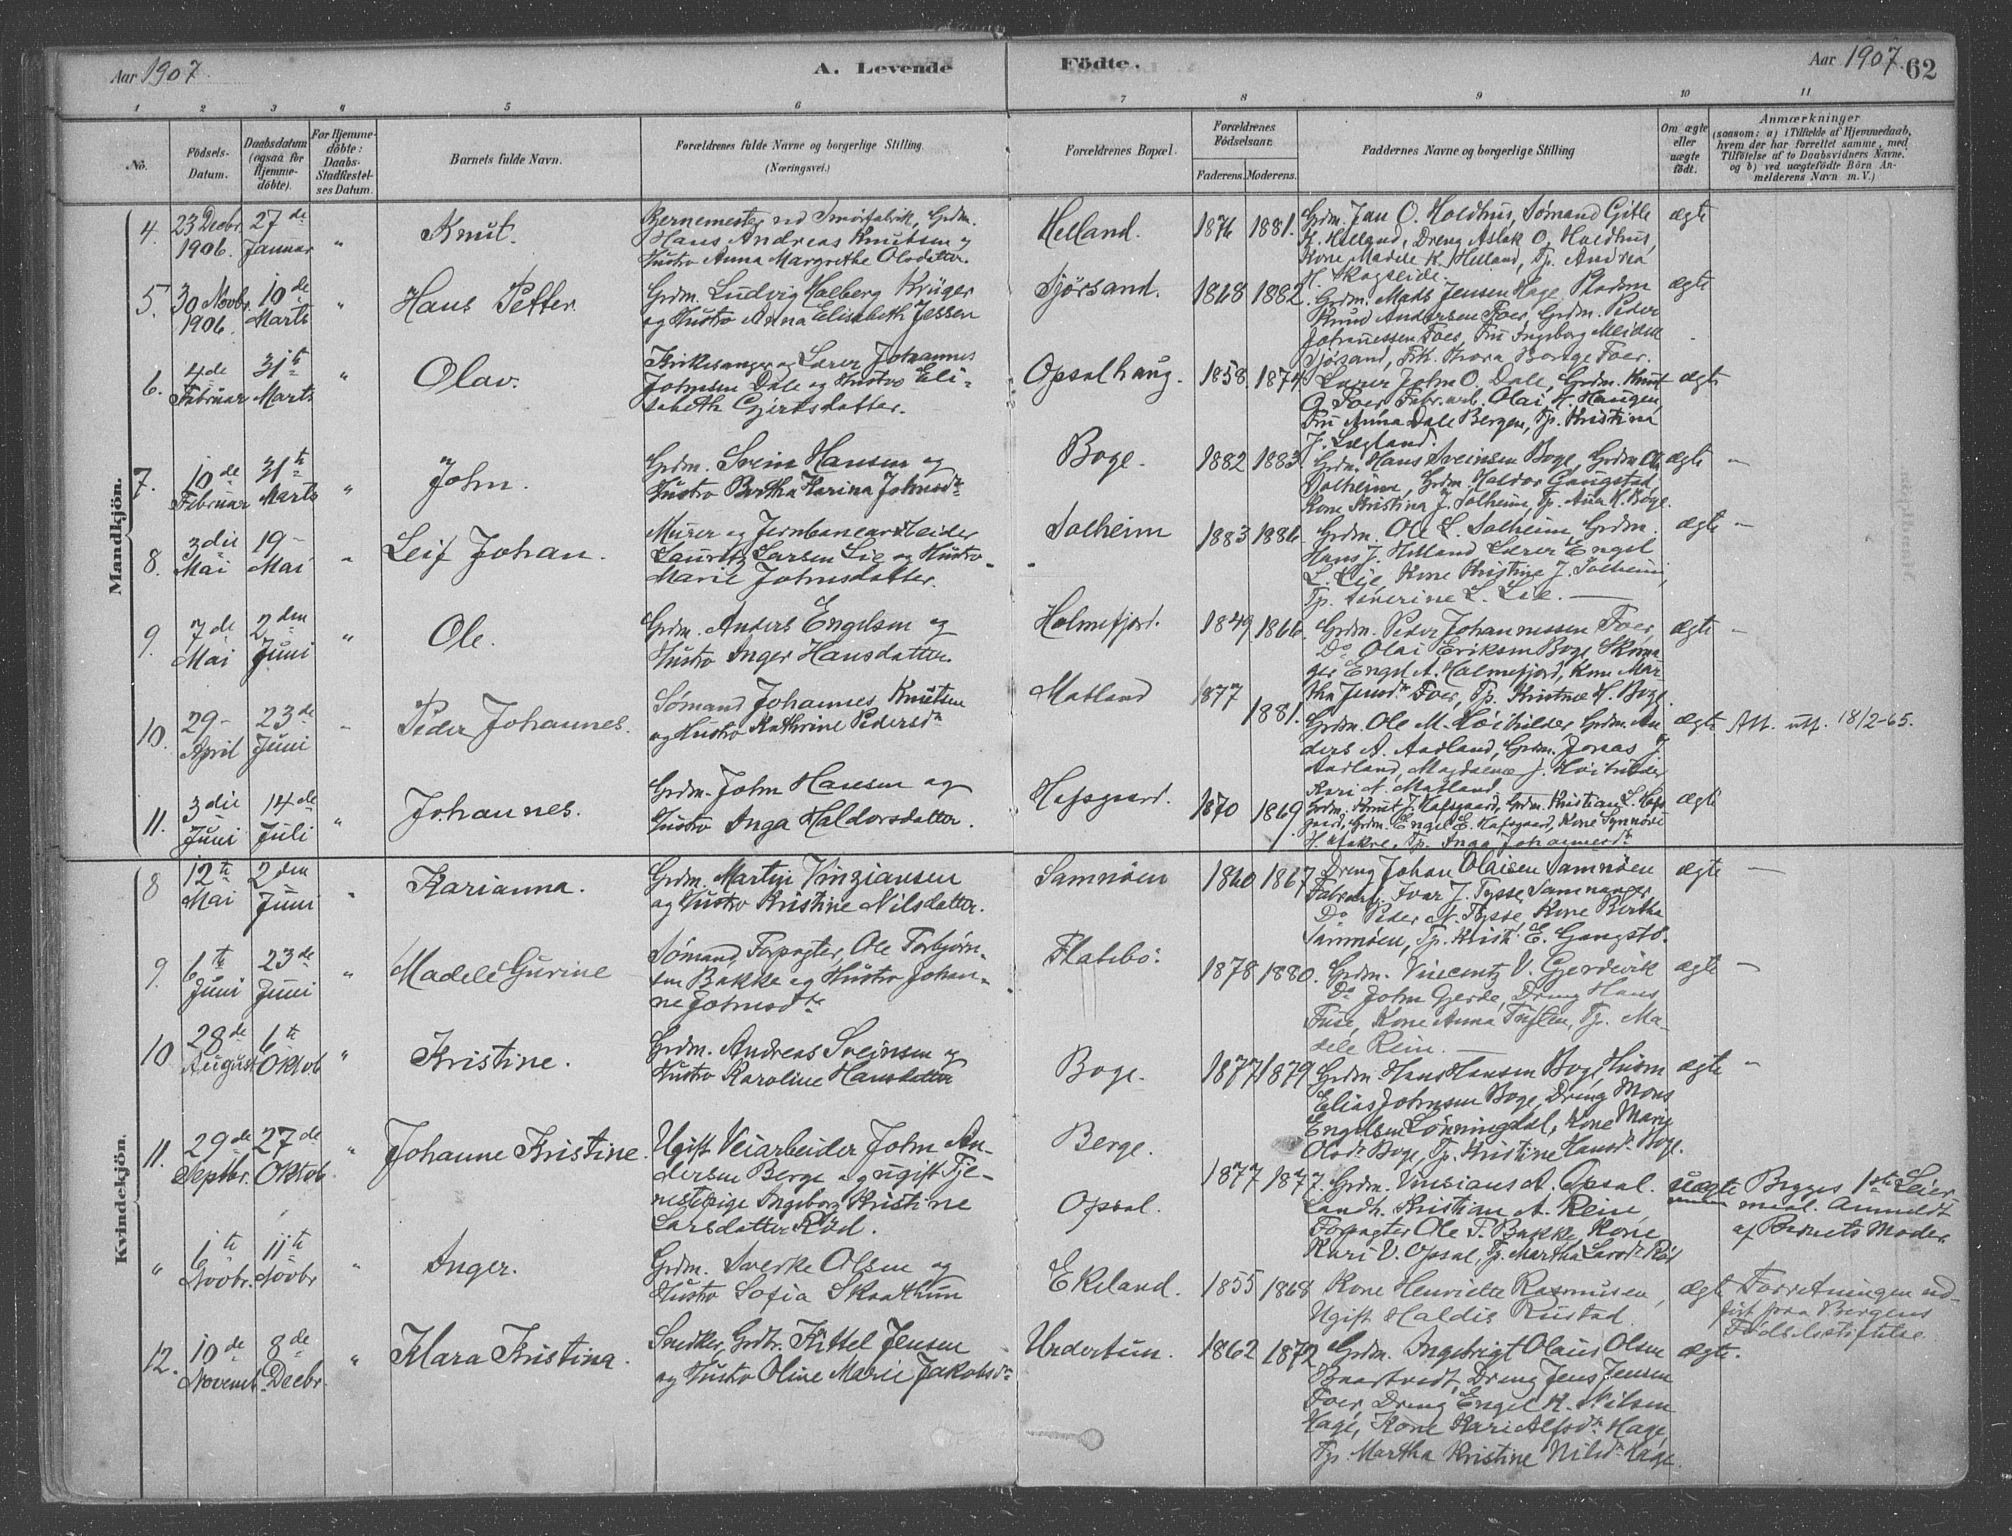 Aar 1907
A. Levende
Födte.
Aar 1907.
62
1 2 3 4 5 6 7 8 9 10 11
No.
Födsels-
Datum.
Daabsdatum
(ogsaa for
Hjemme-
döbte).
For Hjemme-
döbte:
Daabs-
Stadfæstel-
ses Datum.
Barnets fulde Navn.
Forældrenes fulde Navne og borgerlige Stilling.
(Næringsvei.)
Forældrenes Bopæl.
Forældrenes
Födselsaar.
Faderens. Moderens.
Faddernes Navne og borgerlige Stilling
Om ægte
eller
uægte
födt.
Anmærkninger
(saasom: a) i Tilfælde af Hjemmedaab,
hvem der har forrettet samme, med
Tilföielse af to Daabsvidners Navne,
og b) ved uægtefödte Börn An-
melderens Navn m. V.)
Mandkjön.
4. 23 Decbr. 1906. 27de Januar " Knut.
Hans Andreas Knutsen og
Hustro Anna Margrethe Olsdatter.
Helland. 1876 1881.
Grdm. Jan O. Holdhus, Sømand Gitle
K. Helland, Dreng Aslak O. Holdhus,
Kone Madele K. Helland, Tp. Andrea
H. Skogseide.
ægte
5. 30 Novbr. 1906. 10de Marts " Hans Petter.
Grdm. Ludvig Malberg Krüger
og Hustro Anna Elisabeth Jessen
Sjørsand. 1868 1882
Grdm. Mads Jensen Hage,
Knud Andersen Foer, Grdm. Peder
Johannessen Foer, Fru Ingborg
Sjøsand, Frk. Thora Borge Foer.
ægte
6. 4de Februar 31te Marts " Olav.
Kirkesanger og Lærer Johannes
Johnsen Dale og Hustro Eli-
sabeth Gjertsdatter.
Opsalhaug. 1858 1874
Lærer John O. Dale, Grdm. Knut
O. Foer, Fabr. arb. Olai H. Haugen,
Fru Anna Dale Bergen, Tp. Kristina
J. Lægland.
ægte
7. 10de Februar 31te Marts " John.
Grdm. Svein Hansen og
Hustro Bertha Karina Johnsdtr
Boge. 1882 1883
Grdm. Hans Sveinsen Boge, Grdm. Ole
Solheim, Grdm. Haldor Gangstad,
Kone Kristina J. Solheim, Tp. Ana K. Boge.
ægte –
8. 3die Mai 19– Mai " Leif Johan.
Murer og Jernbanearbeider
Lauritz Larsen Lie og Hustro
Marie Johnsdatter.
Solheim 1883 1886
Grdm. Ole L. Solheim, Grdm.
Hans J. Helland, Lærer Engel
L. Lie, Kone Kristine J. Solheim,
Tp. Severine L. Lie.
ægte –
9. 7de Mai 2den Juni " Ole.
Grdm. Anders Engelsen og
Hustro Inger Hansdatter.
Holmefjord. 1849 1866
Grdm. Peder Johannessen Foer,
Do Olai Eriksen Boge, Skoma-
ger Engel A. Holmefjord, Kone Mar-
tha Jensdtr Foer, Tp. Kristine H. Boge.
ægte –
10. 29– April 23de Juni – Peder Johannes.
Sømand Johannes Knutsen
og Hustro Kathrine Pedersdtr
Matland 1877 1881.
Grdm. Ole M. Høibilder, Grdm. An-
ders A. Aadland, Grdm. Jonas J.
Aadland, Magdalene J. Høibilder
Kari N. Matland
ægte Att. utf. 18/2-65.
11. 3die Juni 14de Juli " Johannes.
Grdm. John Hansen og
Hustro Inga Haldorsdatter.
Hafsgaard. 1870 1869
Grdm. Knut J. Hafsgaard, Grdm. Kristian L. Hafs-
gaard, Grdm. Engel E. Hafsgaard, Kone Synnøve
ægte
Kvindekjön.
8 12te Mai 2den Juni " Karianna.
Grdm. Martin Vinziansen
og Hustro Kristine Nilsdatter.
Samnøen 1860 1867
Dreng Johan Olaisen Samnøen
Fabrarb. Ivar J. Tysse, Samnanger,
Do Peder N. Tysse, Kone Bertha
Samnøen, Tp. Krist. E. Gangstd.
ægte –
9. 6te Juni 23de Juni " Madele Gurine
Sømand, Forpagter, Ole Torbjørn-
sen Bakke og Hustro Johan-
ne Johnsdtr
Flatebø. 1878 1880.
Grdm. Vincentz V. Gjerdevik
Do John Gjerde, Dreng Hans
Fuse, Kone Anna Tuflen, Tp. Ma-
dele Rein.
ægte –
10. 28de August 6te Oktob " Kristine.
Grdm. Andreas Sveinsen og
Hustro Karoline Hansdatter
Boge. 1877 1879
Grdm. Hans Hansen Boge, Husm
Elias Johnsen Boge, Dreng Mons
Engelsen Lønningdal, Kone Marie
Olsdr Boge, Tp. Kristine Hansdr Boge.
ægte –
11. 29de Septbr. 27de Oktob. " Johanne Kristine.
Ugift Veiarbeider John An-
dersen Berge og ugift Tje-
nestepige Ingeborg Kristine
Larsdatter Rød.
Berge.
Opsal.
1877 1877.
Grdm. Vinsians A. Opsal.
Landh. Kristian A. Rein,
Forpagter Ole T. Bakke, Kone
Kari V. Opsal, Tp. Martha Larsdr Rød
uægte
Begges 1ste Leier-
maal. Anmeldt
af Barnets Moder.
" 6te Novbr. 11te Novbr " Inger.
Grdm. Sverke Olsen og
Hustro Sofia Skaathun
Ekeland. 1855 1868
Kone Henriette Rasmusen,
Ugift Haldis Rustad.
ægte
Forretningen ud-
ført paa Bergens
Fødselsstiftelse.
12. 10de Novemb. 8de Decbr. " Klara Kristina.
Snedker, Grdbr. Kittel Jensen
og Hustro Oline Marie Jakobsdtr
Undertun. 1862 1872
Grdm. Ingebrigt Olaus Olsen
Baartvedt, Dreng Jens Jensen
Foer, Dreng Engel K. Nilsen
Hage, Kone Kari Alfsdtr Hage,
Tp. Martha Kristine Nilsdr Hage.
ægte.